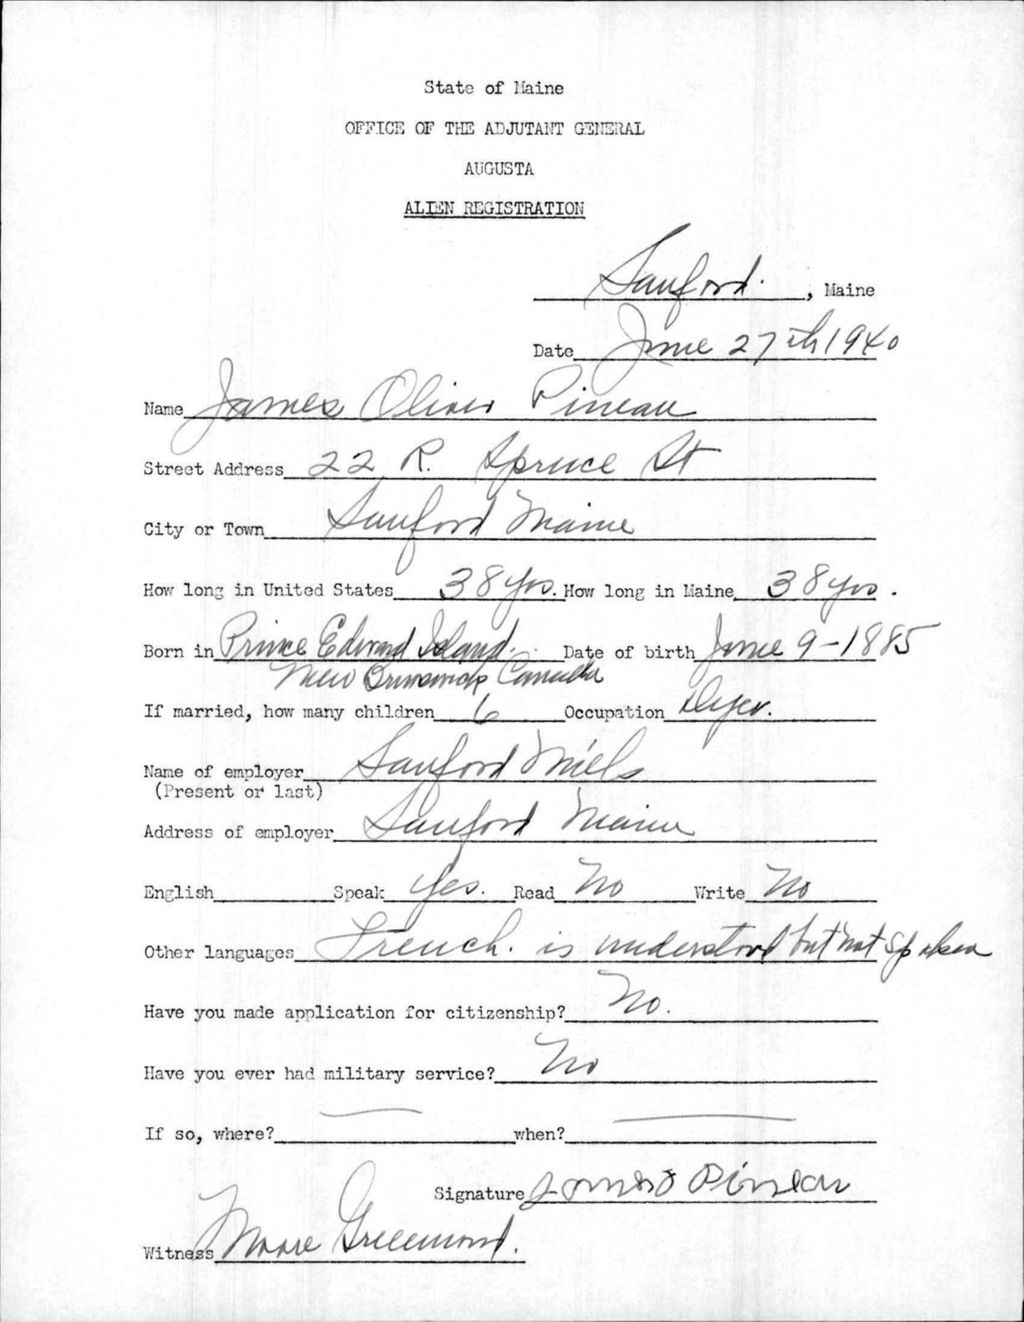 State of Maine
OFFICE OF THE ADJUTANT GENERAL
AUGUSTA
ALIEN REGISTRATION
Sanford. , Maine
Date June 27th 1940
Name James Oliver Pineau
Street Address 22 R. Spruce St
City or Town Sanford Maine
How long in United States 38 yrs. How long in Maine 38 yrs.
Born in Prince Edward Island. Date of birth June 9-1885
New Brunswick Canada
If married, how many children 6 Occupation Dyer.
Name of employer Sanford Mills
(Present or last)
Address of employer Sanford Maine
English Speak Yes. Read No Write No
Other languages French. is understood but not spoken
Have you made application for citizenship? No.
Have you ever had military service? No
If so, where? when?
Signature James O Pineau
Witness